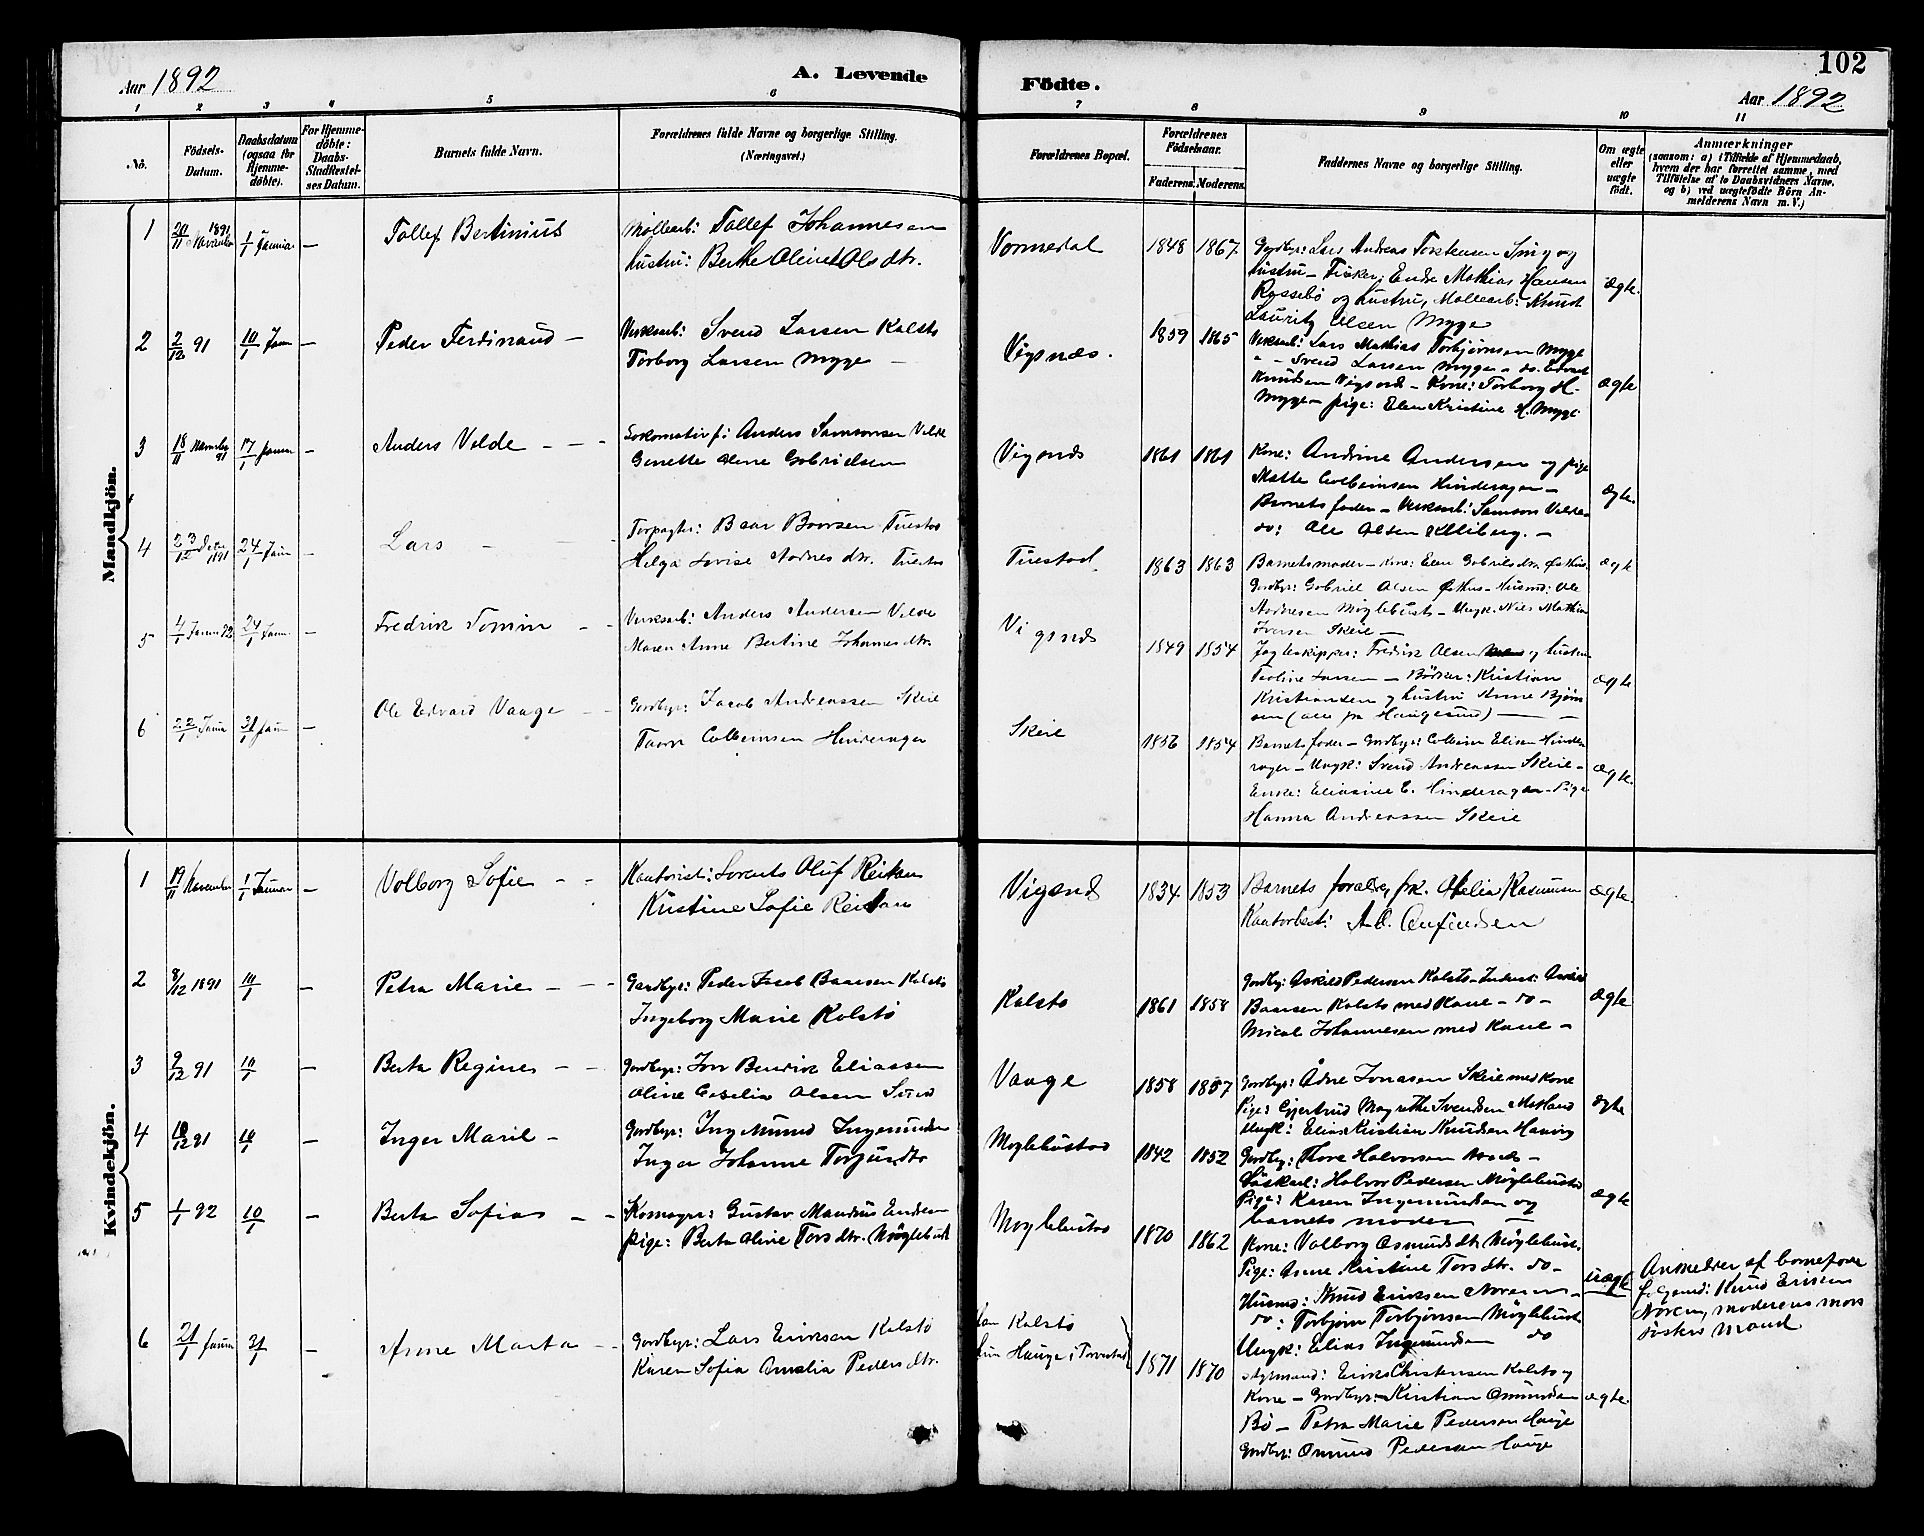 102
Aar 1892
A. Levende
Födte.
Aar 1892
1 2 3 4 5 6 7 8 9 10 11
No.
Födsels-Datum.
Daabsdatum (ogsaa for Hjemme-döbte).
For Hjemme-döbte: Daabs-Stadfæstel-ses Datum.
Barnets fulde Navn.
Forældrenes fulde Navne og borgerlige Stilling.
(Næringsvei.)
Forældrenes Bopæl.
Forældrenes Födselsaar.
Faderens. Moderens.
Faddernes Navne og borgerlige Stilling.
Om ægte eller uægte födt.
Anmærkninger
(saasom: a) i Tilfælde af Hjemmedaab,
hvem der har forrettet samme, med
Tilföielse af to Daabsvidners Navne,
og b) ved uægtefödte Börn An-
melderens Navn m. V.)
Mandkjön.
1 20/11 1891 November 1/1 Januar — Tollef Bertinius
Møllearb: Tollef Johannesen
hustru: Berthe Oline Olsdtr.
Vormedal 1848 1867
Gordbr: Lars Andreas Torstensen og
hustru – Fisker: Endre Mathias Hansen
og hustru, Møllearb: Knud
Lauritz Olsen Myge
ægte.
2 2/12 91 10/1 Janu — Peder Ferdinand —
Verksarb: Svend Larsen Kolstø
Torborg Larsen Myge —
Vigsnæs. 1859 1865
Verksarb: Lars Mathias Torbjørnsen Myge
" – Svend Larsen Myge – do.
Knudsen Vigsnæs – Kone: Torborg H.
Myge – pige: Elen Kristine H. Myge
ægte
3 18/11 91 17/1 Janu — Anders Velde — — —
Lokomotivf: Anders Samsonsen Velde
Genette Oline Gabrielsen
Vigsnæs 1861 1861
Kone: Andrine Andersen og pige
Mette Colbeinsen Hinderager —
Barnets fader – Verksarb: Samson Velde
do: Ole Olsen —
ægte.
4 23/12 Decbr 1891 24/1 Janu — Lars — —
Forpagter: Baar Baarsen Tuestad
Helga Lovise Aadnesdtr. Tuestad
Tuestad 1863 1863
Barnets moder – Kone: Elen Gabrielsdtr. Østhus
Gordbr: Gabriel Olsen Østhus – Husmd: Ole
Aadnesen Møglebust – Ungk: Niels Mathias
Iversen Skeie —
ægte
5 4/1 Janu 92 24/1 Janu. — Fredrik Tomin — —
Verksarb: Anders Andersen Velde
Maren Anne Bertine Johannesdtr.
Vigsnæs 1849 1854
Jagteskipper: Fredrik Olsen og hustru
Paoline Larsen – Bödker: Kristian
Kristiansen og hustru Anne Bjørn
sen (alle fra Haugesund) — —
ægte
6 22/1 Janu 31/1 Janu — Ole Edvard Vaage — —
Gordbgr: Jacob Andreassen Skeie
Colbeinsen Hinderager
Skeie 1856 1854
Barnets fader – Gordbgr: Colbein Elisen Hinde
rager – Ungk: Svend Andreassen Skeie –
Enke: Eliasine E. Hinderager – Pige
Hanna Andreassen Skeie
ægte.
Kvindekjön.
1 19/11 November 1/1 Januar — Volborg Sofie — —
Kontorist: Lorents Oluf Reitan
Kristine Sofie Reitan
Vigsnæs 1834 1853
Barnets foreldre, frk. Ofelia Rasmussen
Kontorbest: A. O. Anfindsen
ægte.
2 8/12 1891 10/1 — Petra Marie — — —
Gardbgr: Peder Jacob Baarsen Kolstø
Ingeborg Marie Kolstø
Kolstø 1861 1858
Gordbg: Askild Pedersen Kolstø – Inderst:
Baarsen Kolstø med Kone – do –
Mical Johannesen med Kone –
ægte
3 9/12 91 10/1 — Berta Regine — —
Gordbgr: Jon Bendik Eliassen
Oline Cecelia Olsen Sund
Vaage 1858 1857
Gordbgr: Ådne Jonasen Skeie med Kone
Pige: Gjertrud Magrethe Svendsen Matland
Ungk: Elias Kristian Knudsen
ægte
4 10/12 91 10/1 — Inger Marie —
Gordbgr: Ingemund Ingemundsen
Inger Johanne Torjusdtr
Møglebustad 1842 1852
Gordbg: Thore Halvorsen —
Halvor Pedersen Møglebustad
Pige: Karen Ingemundsen og
barnets moder —
ægte
5 1/1 92 10/1 — Berta Sofie — —
Skomager: Gustav Mandius
pige: Berta Oline Torsdtr. Møglebust
Møglebustad 1870 1862
Kone: Valborg Osmundsdtr. Møglebust.
Pige: Anne Kristine Torsdtr. do –
Husmd: Knud Eriksen
do: Torbjørn Torbjørnsen Møglebust
Ungk: Elias Ingemundsen do
uægte
Anmelder af barnefader
Knud Eriksen
moderens mors
søsters mand
6 21/1 Janu 31/1 — Anne Marta — —
Gordbgr: Lars Eriksen Kolstø
Karen Sofia Amalia Pedersdtr.
Han Kolstø
Hun Hauge i Torvestad
1871 1870
Erik Christensen Kolstø og
Kone – Gordbgr: Kristian Osmundsen
Bø – Petra Marie Pedersen Hauge
Gordbgr: Osmund Pedersen Hauge
ægte.